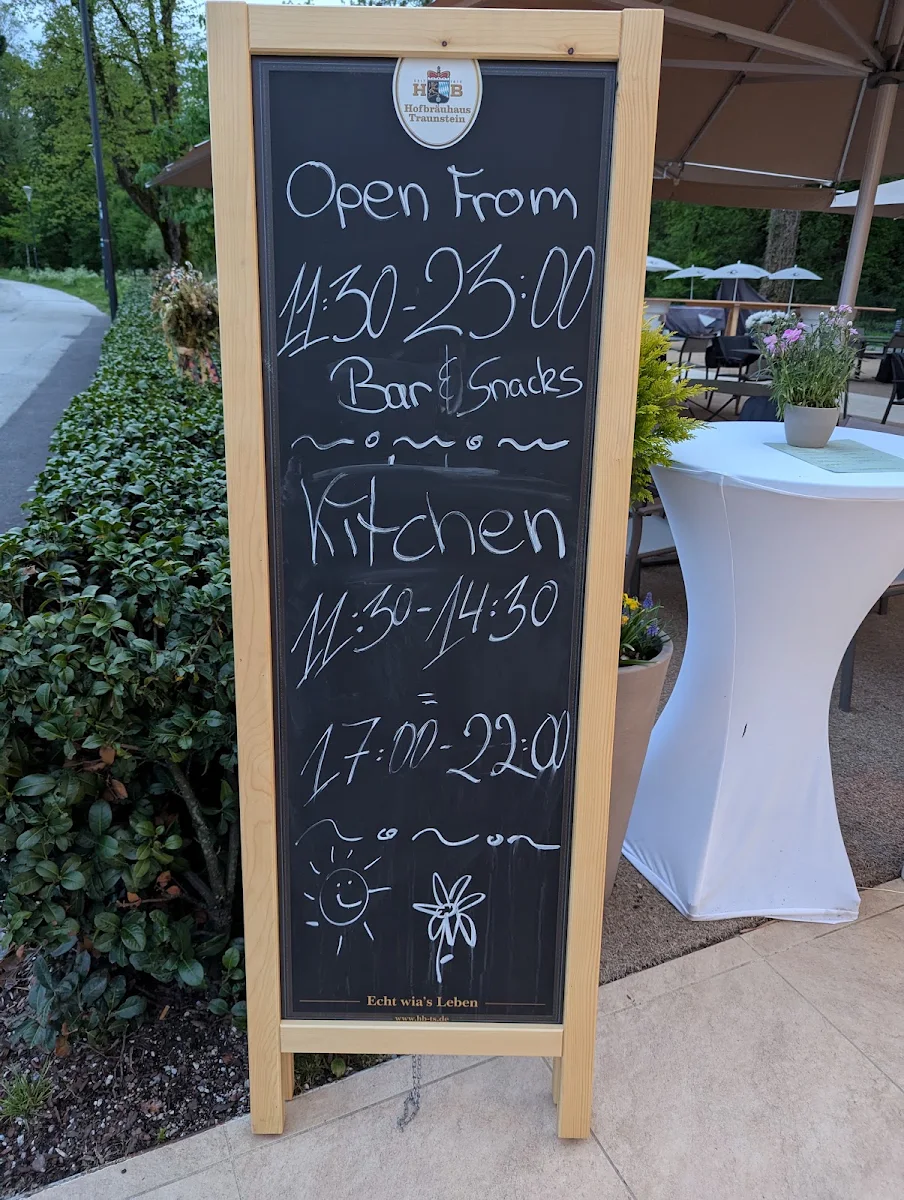 H B
Hofbräuhaus
Traunstein
Open From
11:30-23:00
Bar & Snacks
Kitchen
11:30-14:30
=
17:00-22:00
Echt wia's Leben
www.hb-ts.de